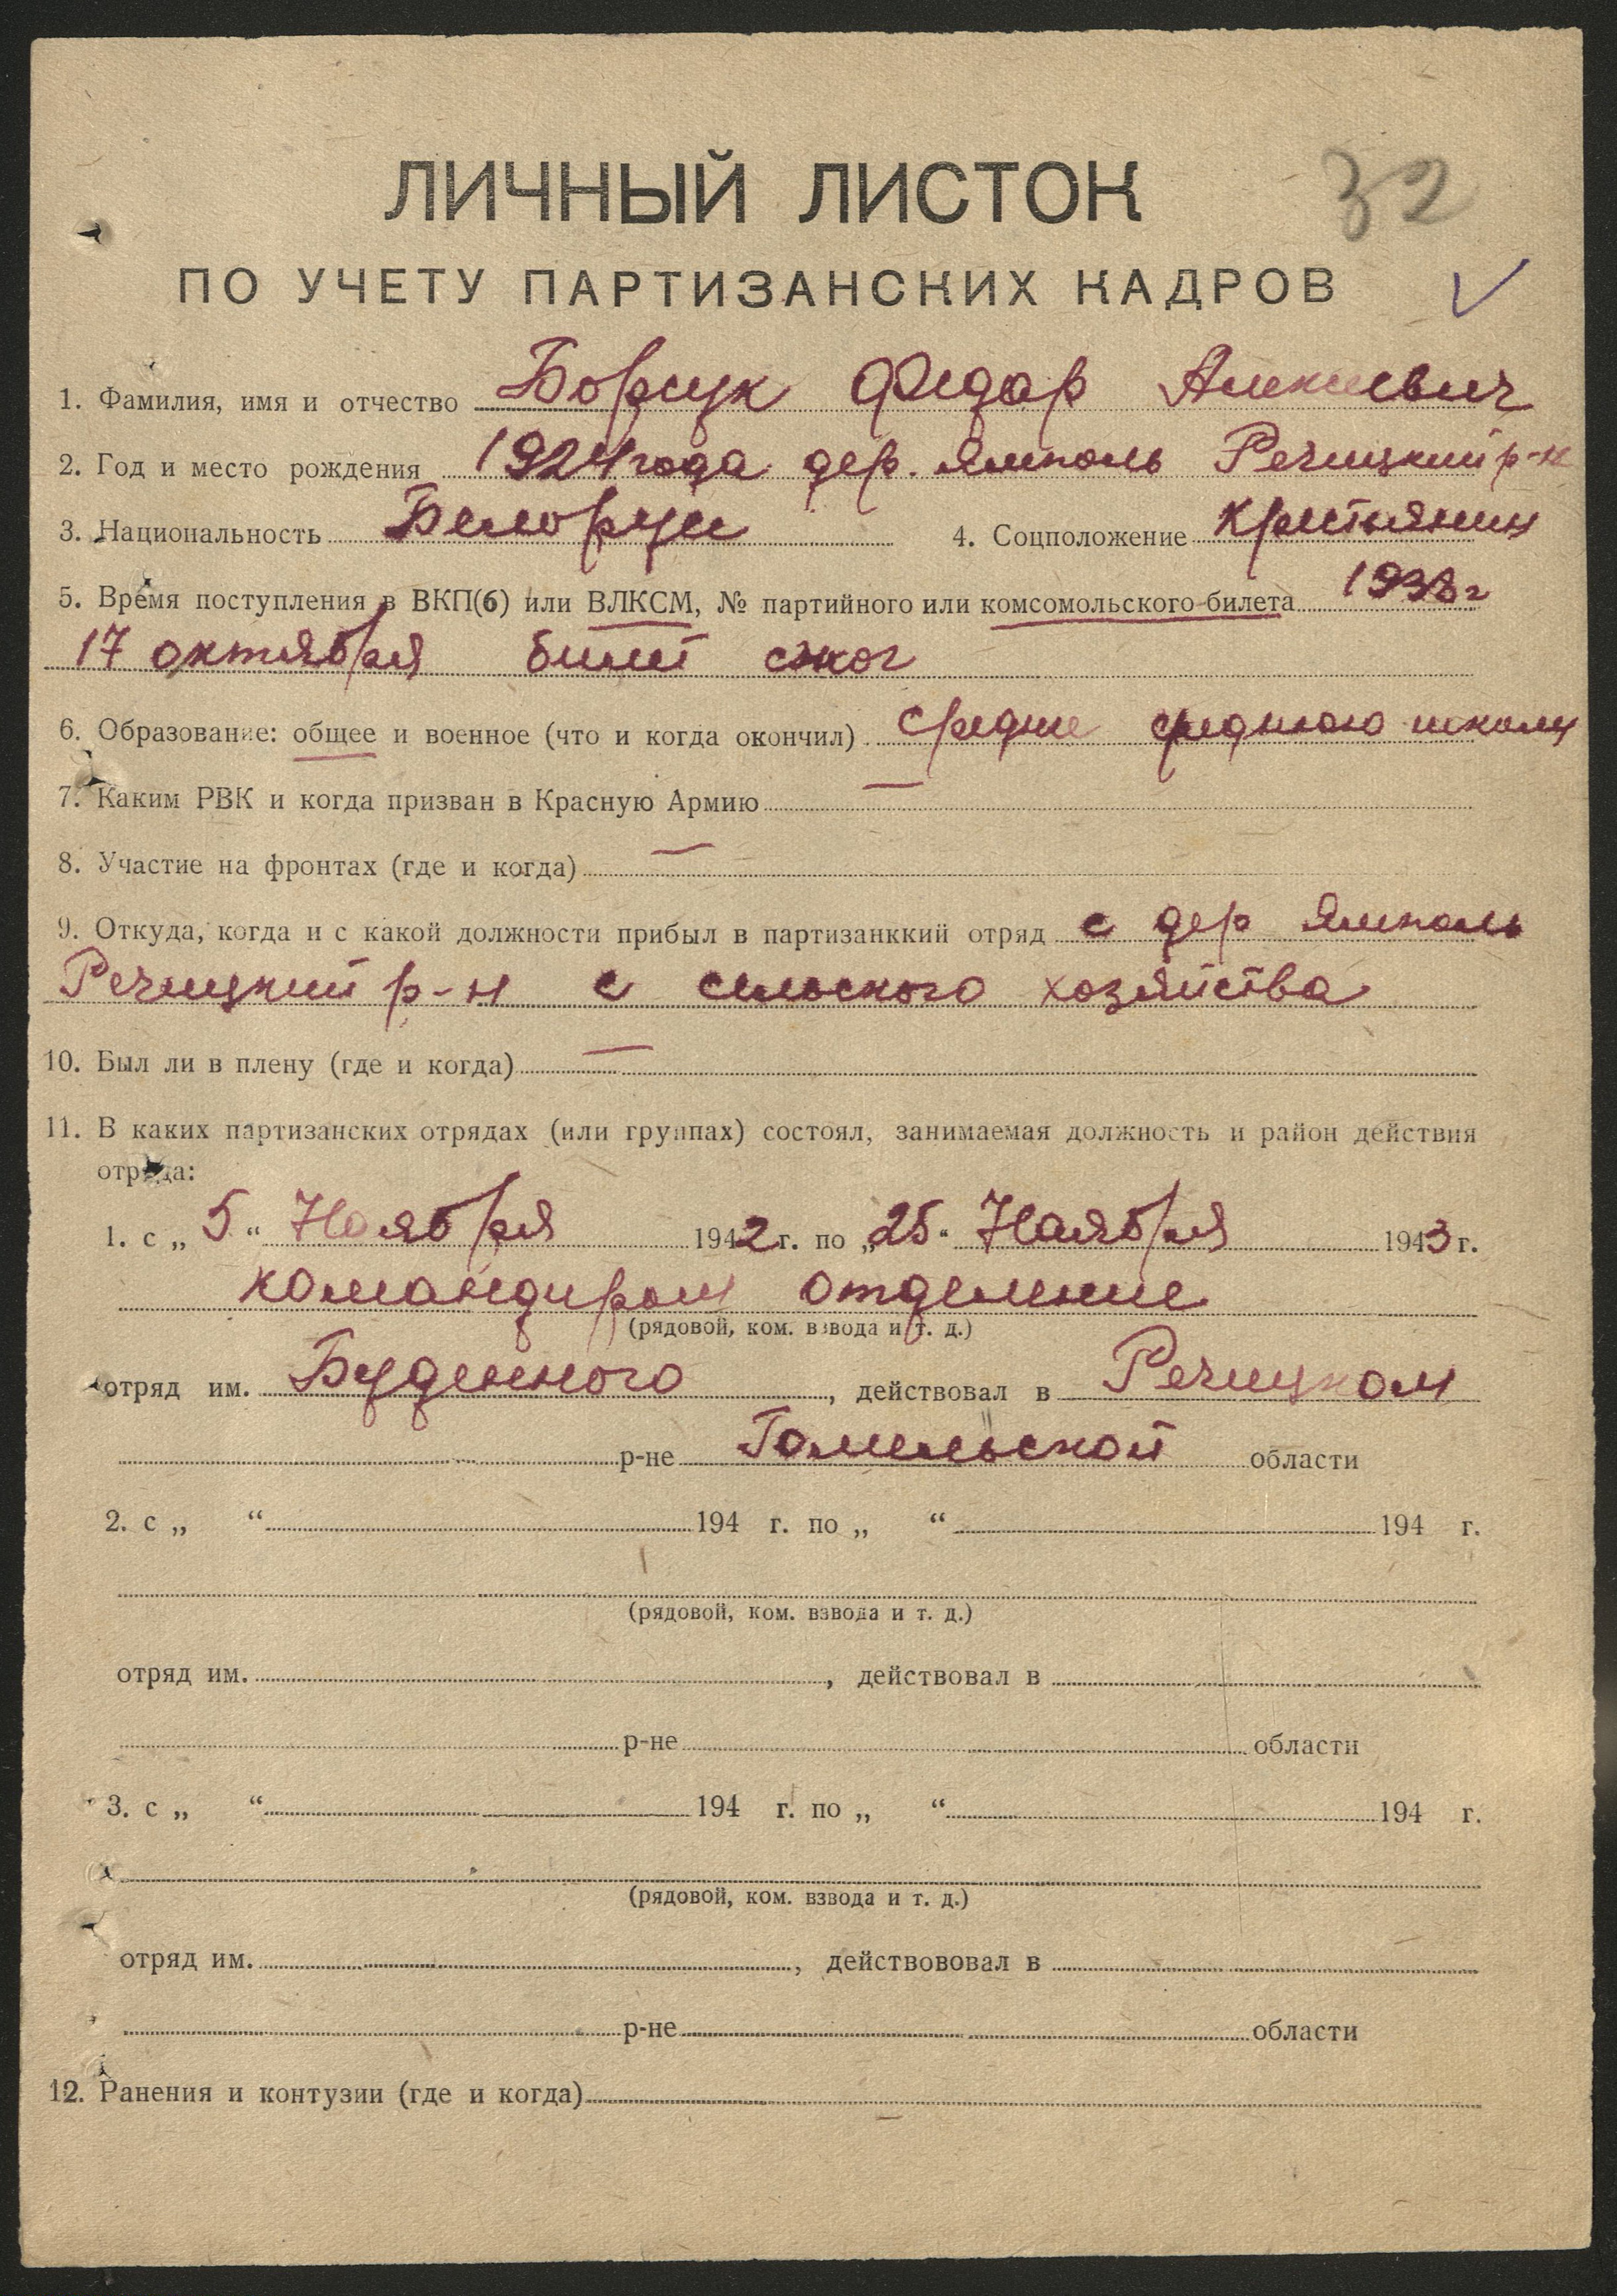 ЛИЧНЫЙ ЛИСТОК
32
ПО УЧЕТУ ПАРТИЗАНСКИХ КАДРОВ
1. Фамилия, имя и отчество Борсук Федар Алексеевич
2. Год и место рождения 1924 года дер. Ямполь Речицкий р-н
3. Национальность Белорус 4. Соцположение Крестьянин
5. Время поступления в ВКП(б) или ВЛКСМ, № партийного или комсомольского билета 1938 г
17 октября билет сжог
6. Образование: общее и военное (что и когда окончил) средние среднюю школу
7. Каким РВК и когда призван в Красную Армию —
8. Участие на фронтах (где и когда) —
9. Откуда, когда и с какой должности прибыл в партизанккий отряд с дер Ямполь
Речицкий р-н с сельского хозяйства
10. Был ли в плену (где и когда) —
11. В каких партизанских отрядах (или группах) состоял, занимаемая должность и район действия
отряда:
1. с „ 5 “ Ноября 1942 г. по „ 25 “ Наября 1943 г.
командиром отделение
(рядовой, ком. взвода и т. д.)
отряд им. Буденного, действовал в Речицком
р-не Гомельской области
2. с „ “ 194 г. по „ “ 194 г.
(рядовой, ком. взвода и т. д.)
отряд им. , действовал в
р-не области
3. с „ “ 194 г. по „ “ 194 г.
(рядовой, ком. взвода и т. д.)
отряд им. , действововал в
р-не области
12. Ранения и контузии (где и когда)